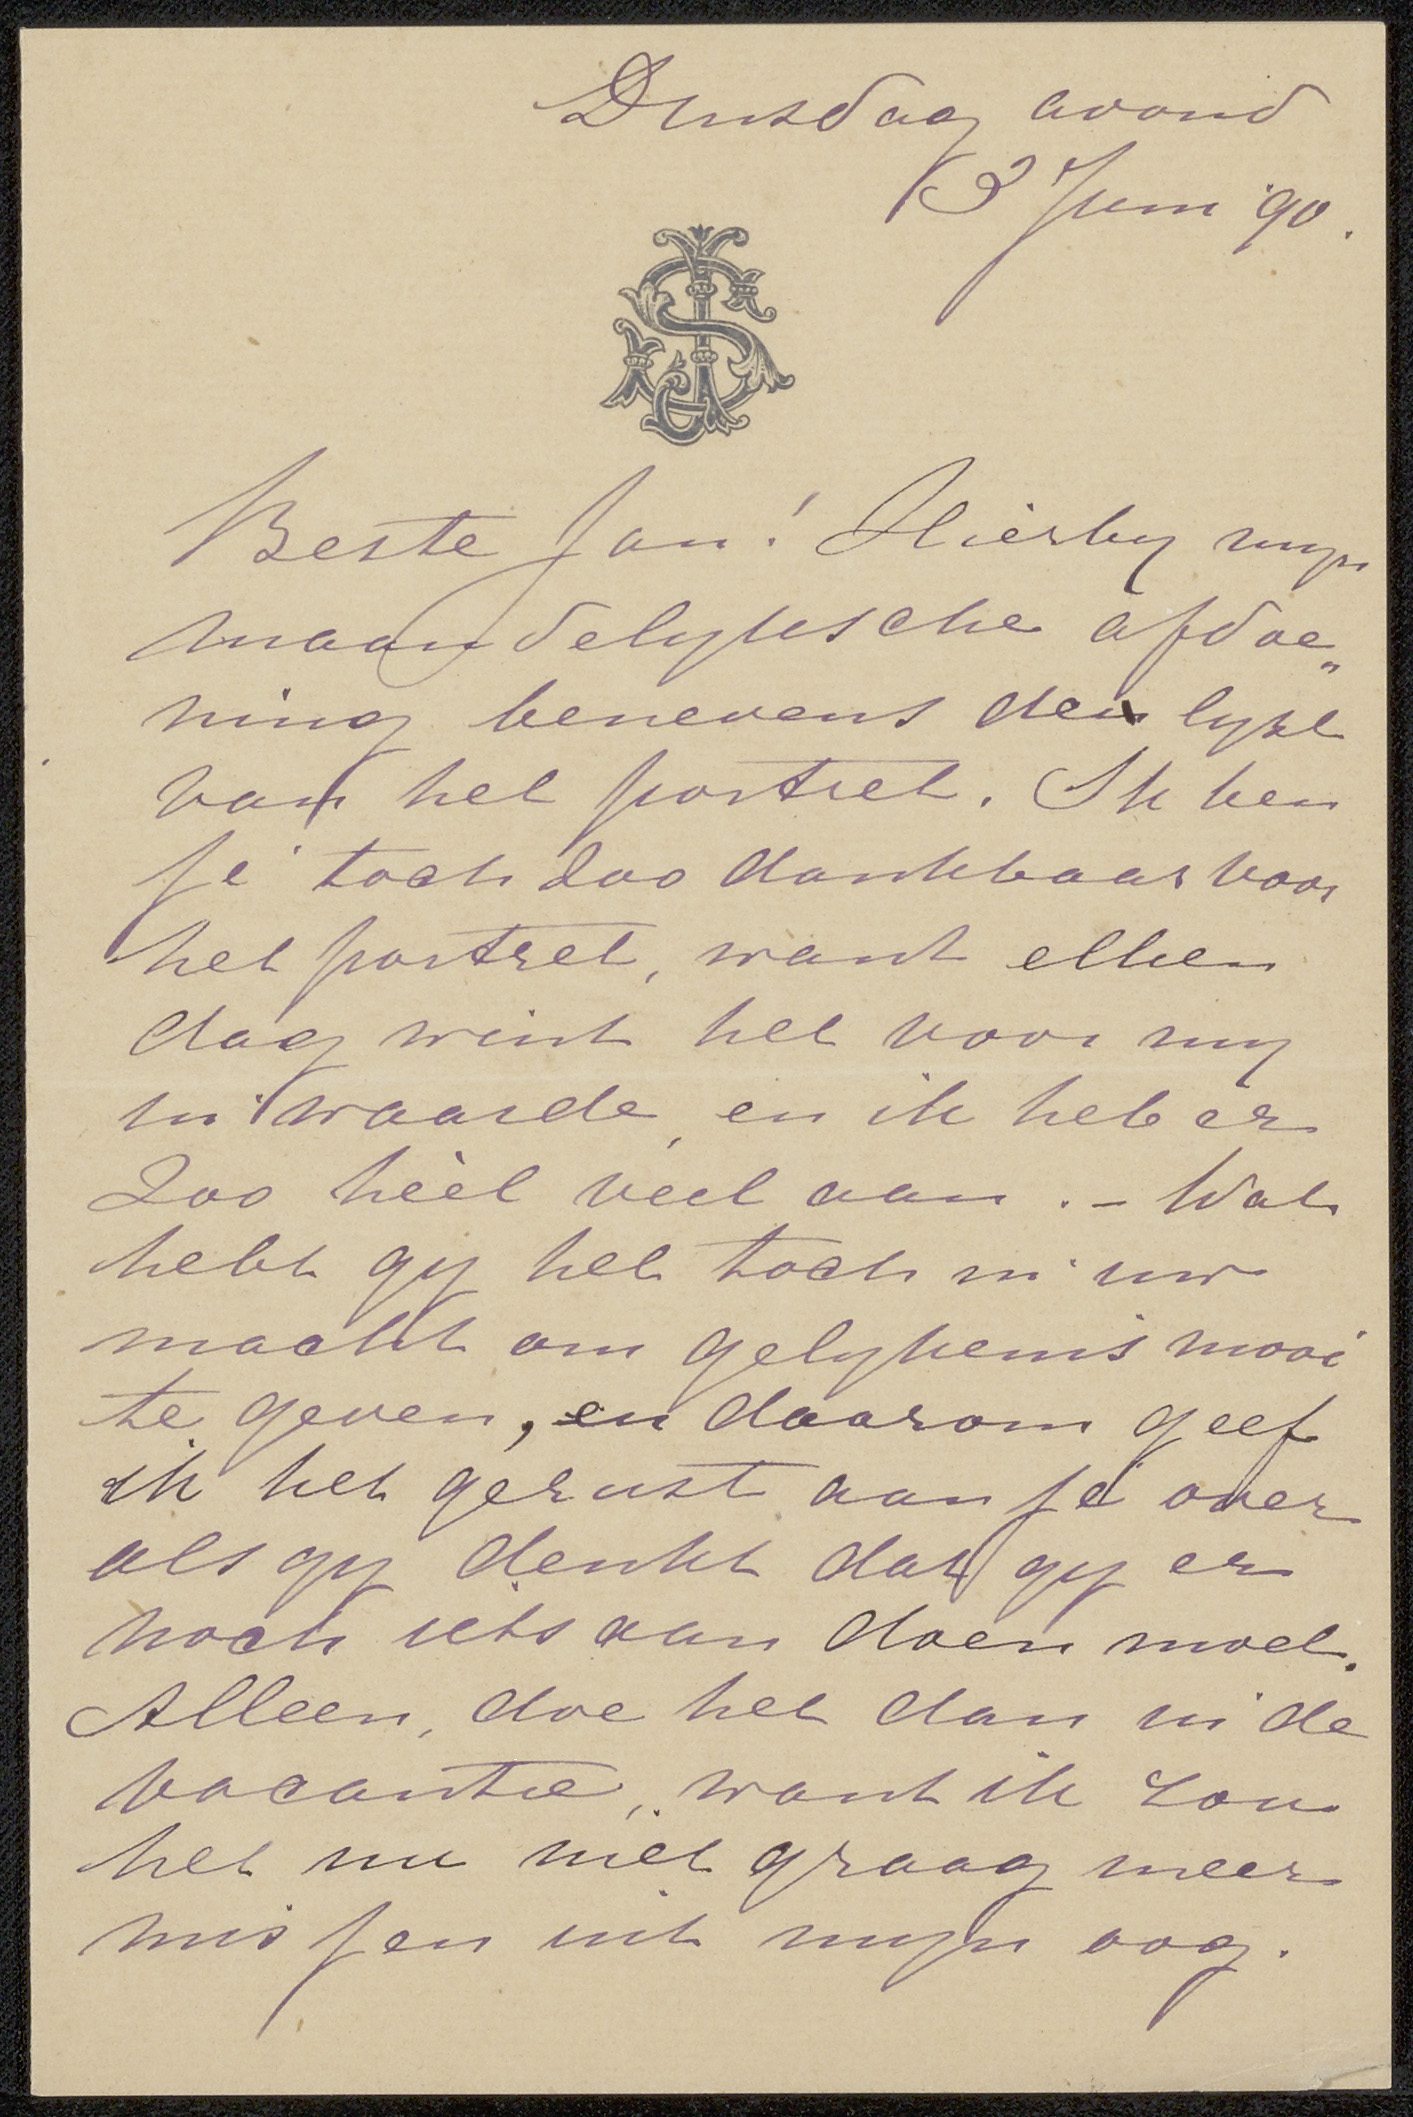 Dinsdag avond
3 Juni 90.
Beste Jan! Hierby myn
maandelyksche afdoe„
ning benevens den lyst
van het portret. Ik ben
je toch zoo dankbaar voor
het portret, want elken
dag wint het voor my
in waarde, en ik heb er
zoo hèèl veel aan. – Wat
hebt gy het toch in uw
macht om gelykenis mooi
te geven, en daarom geef
ik het gerust aan je over
als gy denkt dat gy er
noch iets aan doen moet.
Alleen, doe het dan in de
vacantie, want ik zou
het nu niet graag meer
missen uit myn oog.